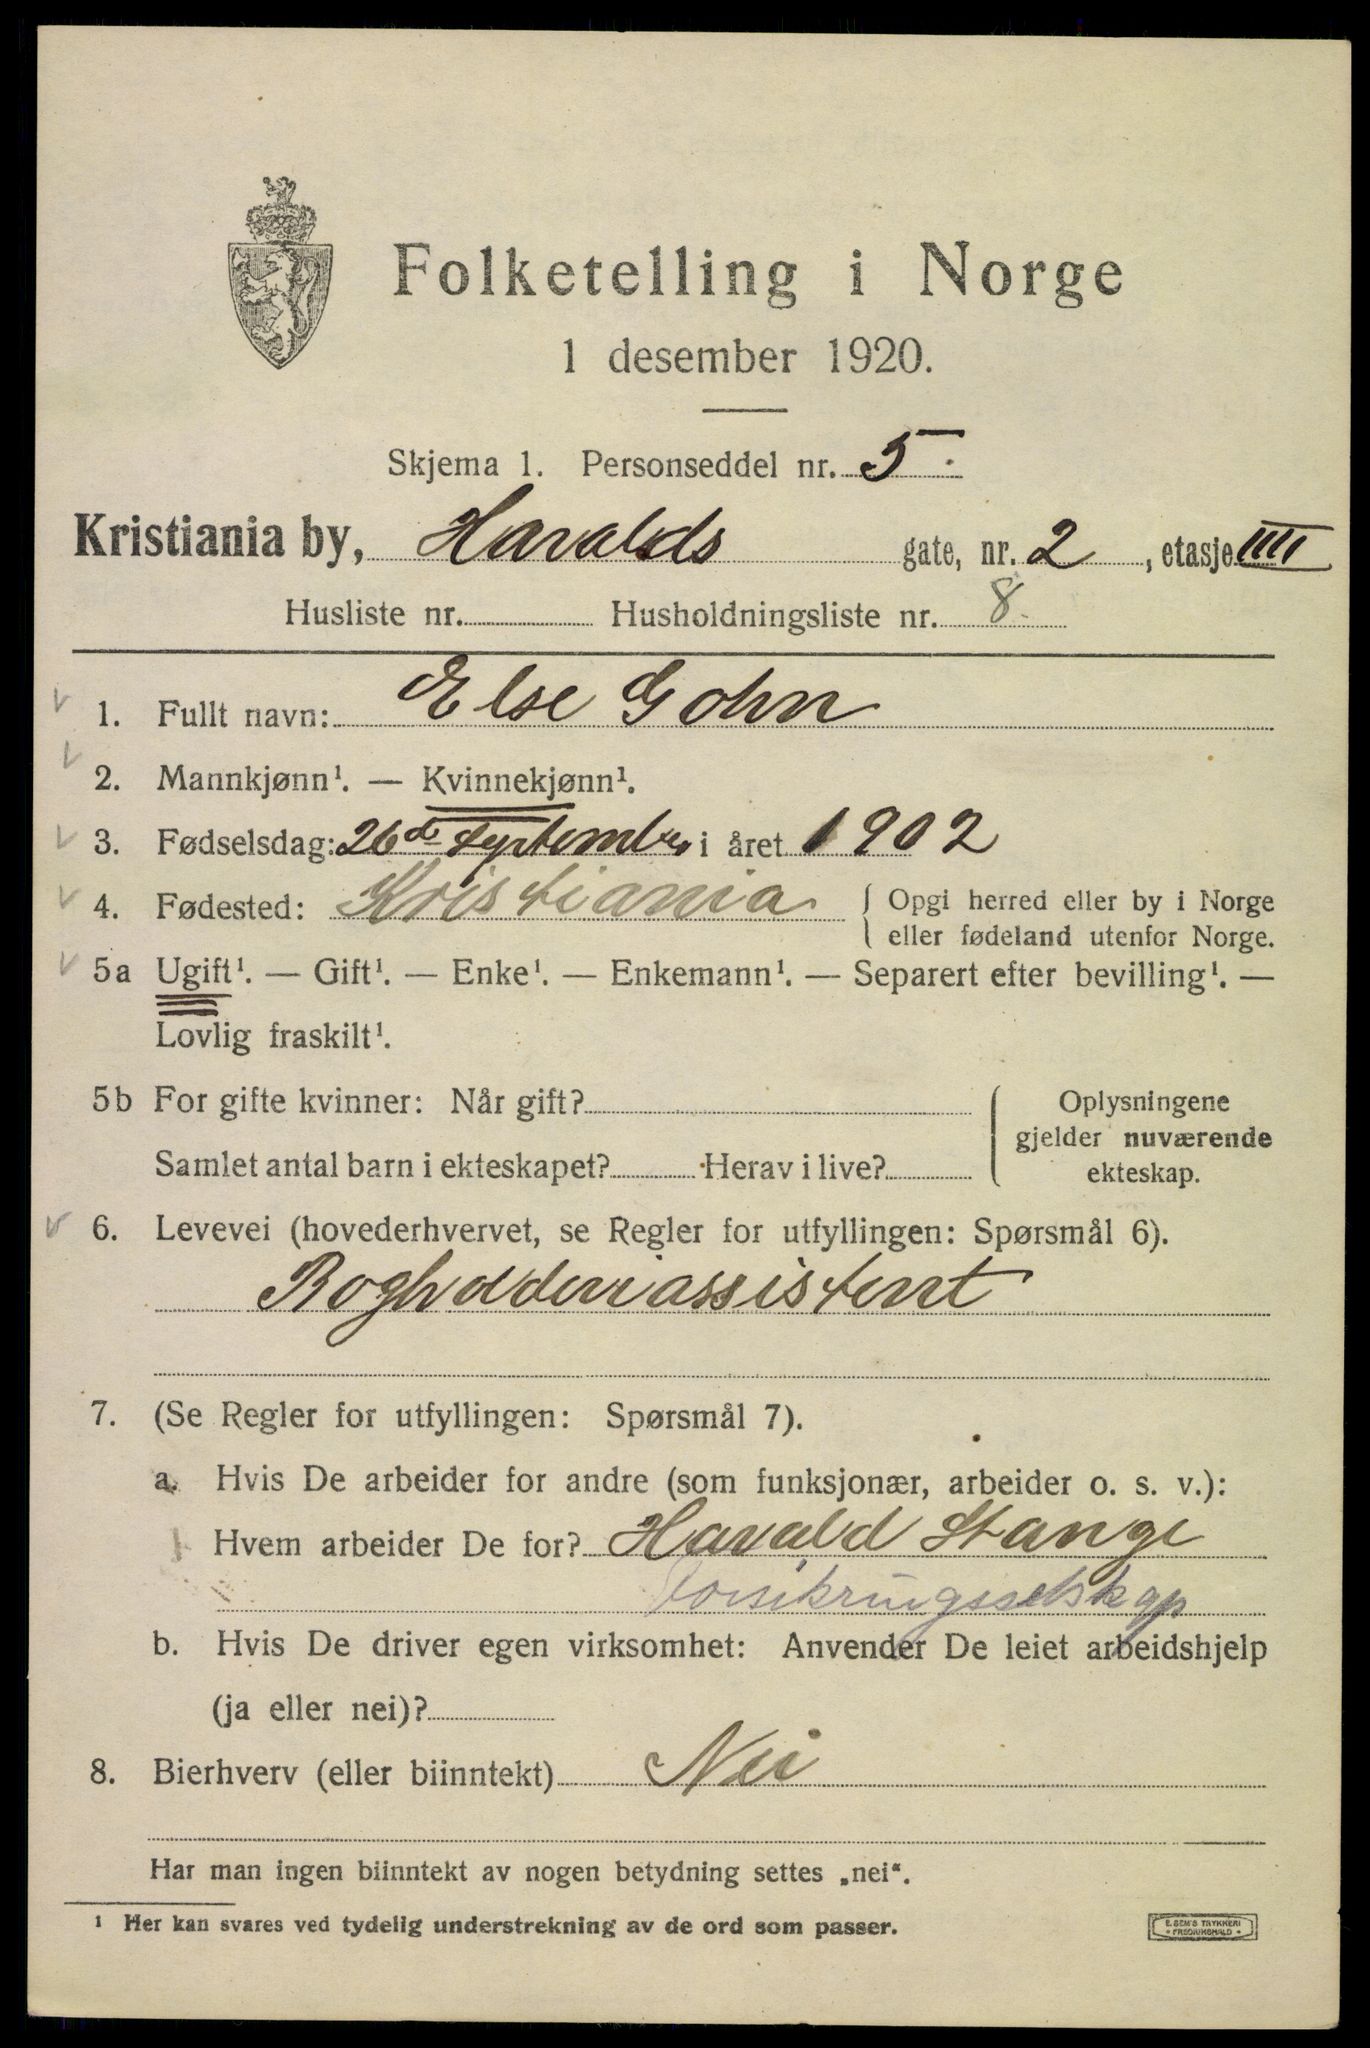 Folketelling i Norge
1 desember 1920.
Skjema 1. Personseddel nr. 5.
Kristiania by, Haralds gate, nr. 2, etasje IIII
Husliste nr. Husholdningsliste nr. 8
1. Fullt navn: Else Gohn
2. Mannkjønn¹. — Kvinnekjønn¹.
3. Fødselsdag: 26de september i året 1902
4. Fødested: Kristiania { Opgi herred eller by i Norge
eller fødeland utenfor Norge.
5a Ugift¹. — Gift¹. — Enke¹. — Enkemann¹. — Separert efter bevilling¹. —
Lovlig fraskilt¹.
5b For gifte kvinner: Når gift? { Oplysningene
gjelder nuværende
Samlet antal barn i ekteskapet? Herav i live? ekteskap.
6. Levevei (hovederhvervet, se Regler for utfyllingen: Spørsmål 6).
Bogholderiassistent
7. (Se Regler for utfyllingen: Spørsmål 7).
a. Hvis De arbeider for andre (som funksjonær, arbeider o. s. v.):
Hvem arbeider De for? Harald Stange
Forsikringsselskap
b. Hvis De driver egen virksomhet: Anvender De leiet arbeidshjelp
(ja eller nei)?
8. Bierhverv (eller biinntekt) Nei
Har man ingen biinntekt av nogen betydning settes „nei“.
¹ Her kan svares ved tydelig understrekning av de ord som passer.
E. SEM'S TRYKKERI
FREDRIKSHALD